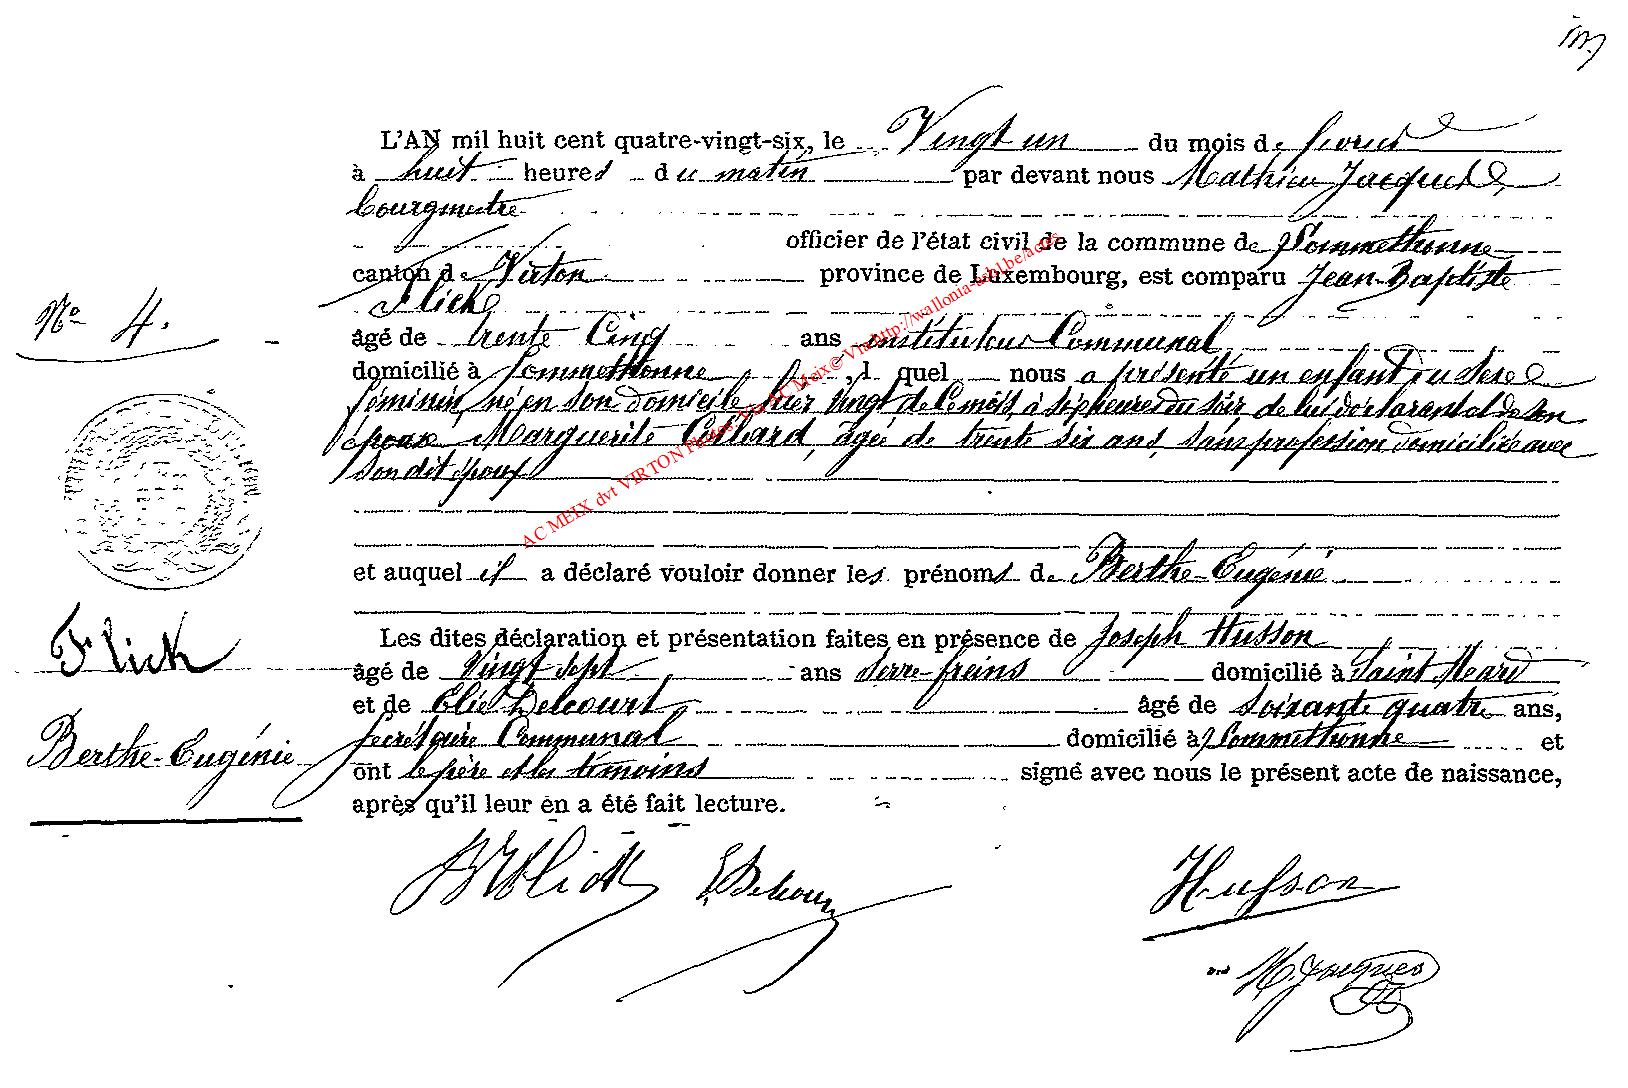 L'AN mil huit cent quatre-vingt-six, le Vingt un du mois de fevrier
à huit heures du matin par devant nous Mathieu Jacques
bourgmestre
officier de l'état civil de la commune de Sommethonne
canton de Virton province de Luxembourg, est comparu Jean-Baptiste
Flick
N° 4.
âgé de trente Cinq ans instituteur Communal
domicilié à Sommethonne, lequel nous a présenté un enfant du sexe
féminin, né en son domicile, hier vingt de ce mois, à sept heures du soir, de lui déclarant et de son
épouse Marguerite Collard, âgée de trente six ans, sans profession domiciliée avec
son dit époux
et auquel il a déclaré vouloir donner les prénoms de Berthe-Eugénie
Les dites déclaration et présentation faites en présence de Joseph Husson
Flick
âgé de Vingt sept ans serre-freins domicilié à Saint Mard
et de Elie Delcourt âgé de soixante quatre ans,
Berthe-Eugénie
secrétaire Communal domicilié à Sommethonne et
ont le père et les témoins signé avec nous le présent acte de naissance,
après qu'il leur en a été fait lecture.
JBFlick E Delcourt Husson
M. Jacques
AC MEIX dvt VIRTON Photos Via AC Meix@Via http://wallonia-asbl.be/actes